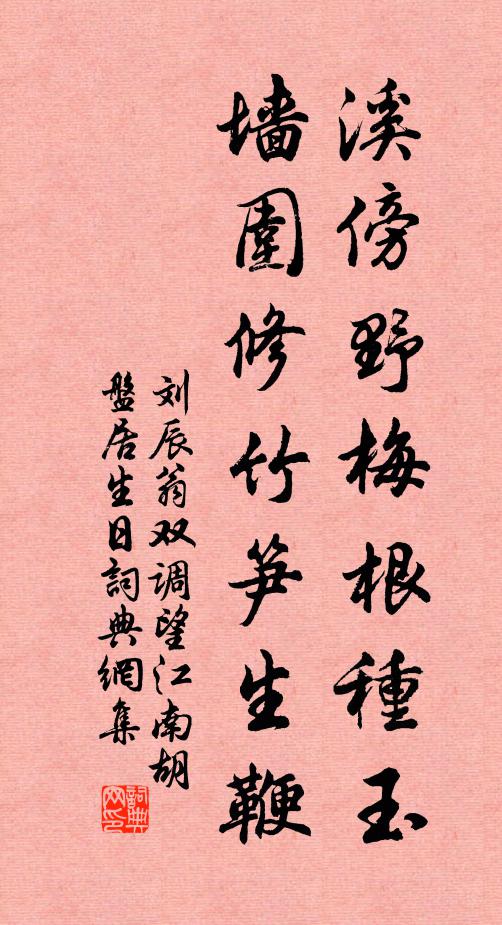 溪傍野梅根種玉
墙圍修竹笋生鞭
刘辰翁双调望江南胡
盤居生日詞典網集
詞典网印